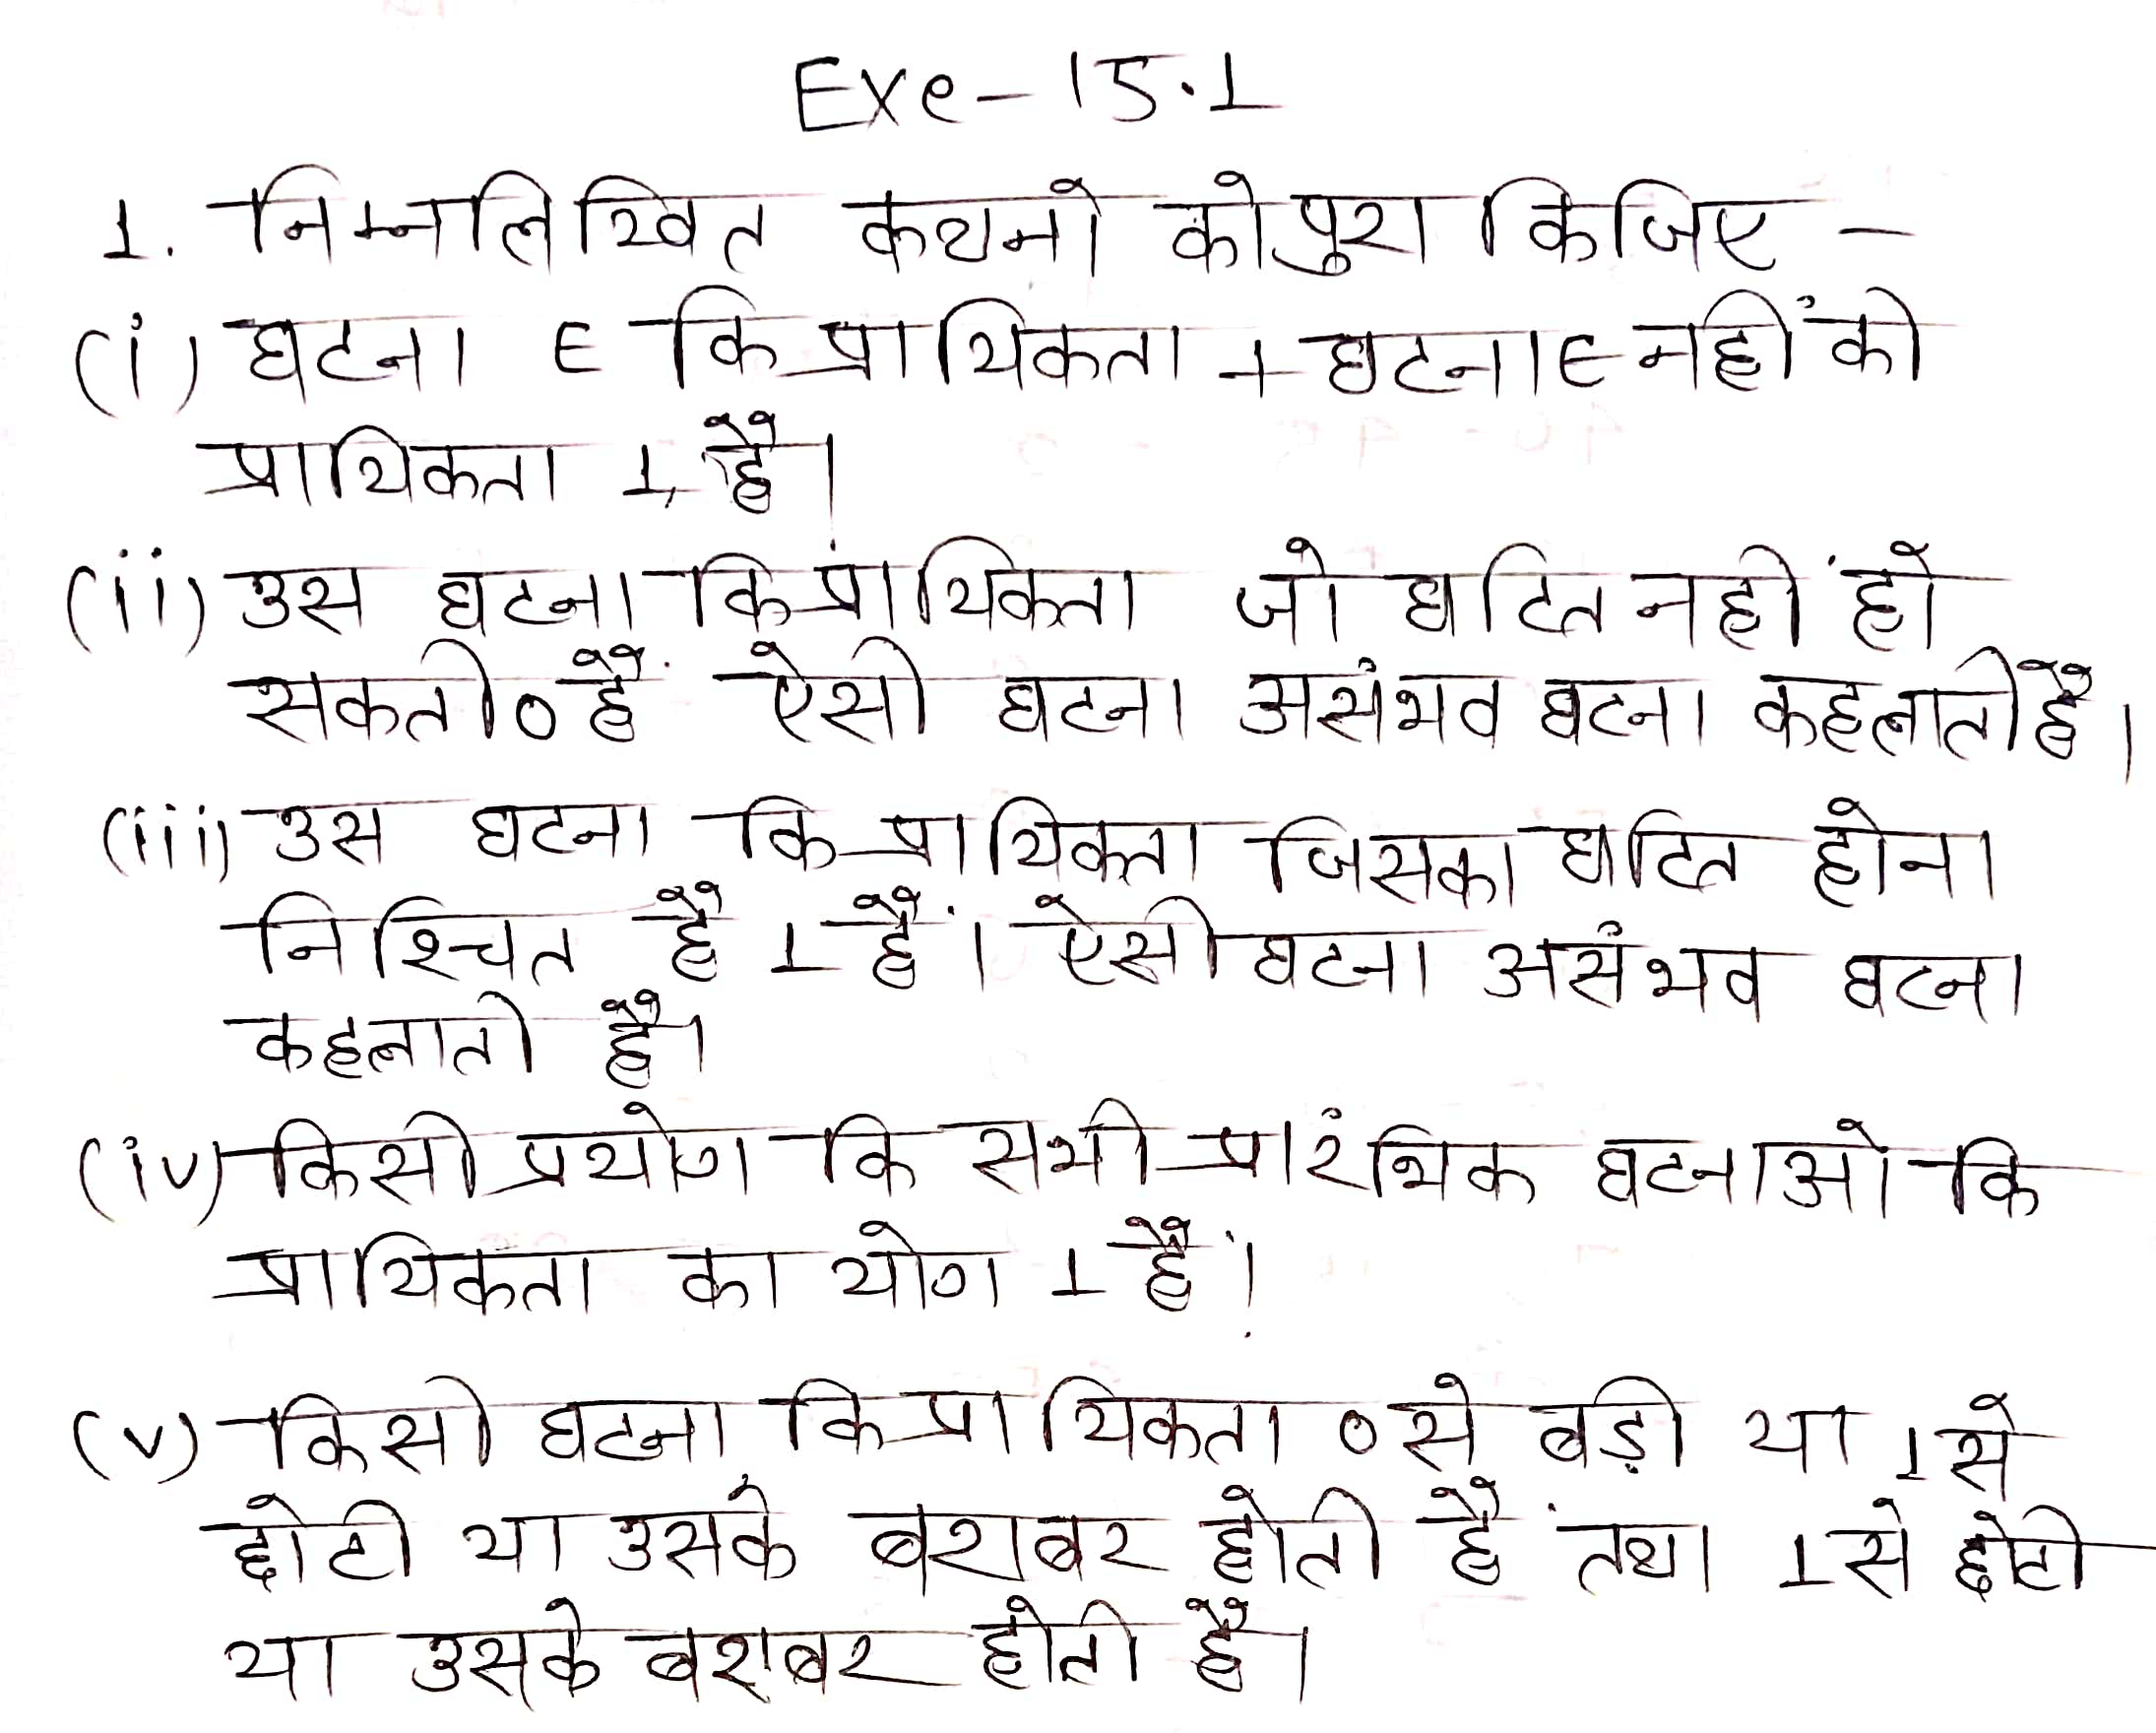 Exe-15.1
1. निम्नलिखित कथनो को पुरा किजिए -
(i) घटना E कि प्रायिकता + घटना E नहीं को
प्रायिकता 1 है।
(ii) उस घटना कि प्रायिकता जो घटित नहीं हो
सकती 0 है ऐसी घटना असंभव घटना कहलाती है।
(iii) उस घटना कि प्रायिकता जिसका घटित होना
निश्चित है 1 है। ऐसी घटना असंभव घटना
कहलाती है।
(iv) किसी प्रयोग कि सभी प्रारंभिक घटनाओ कि
प्रायिकता का योग 1 है।
(v) किसी घटना कि प्रायिकता 0 से बड़ी या 1 से
छोटी या उसके बराबर होती है तथा 1 से छोटी
या उसके बराबर होती है।